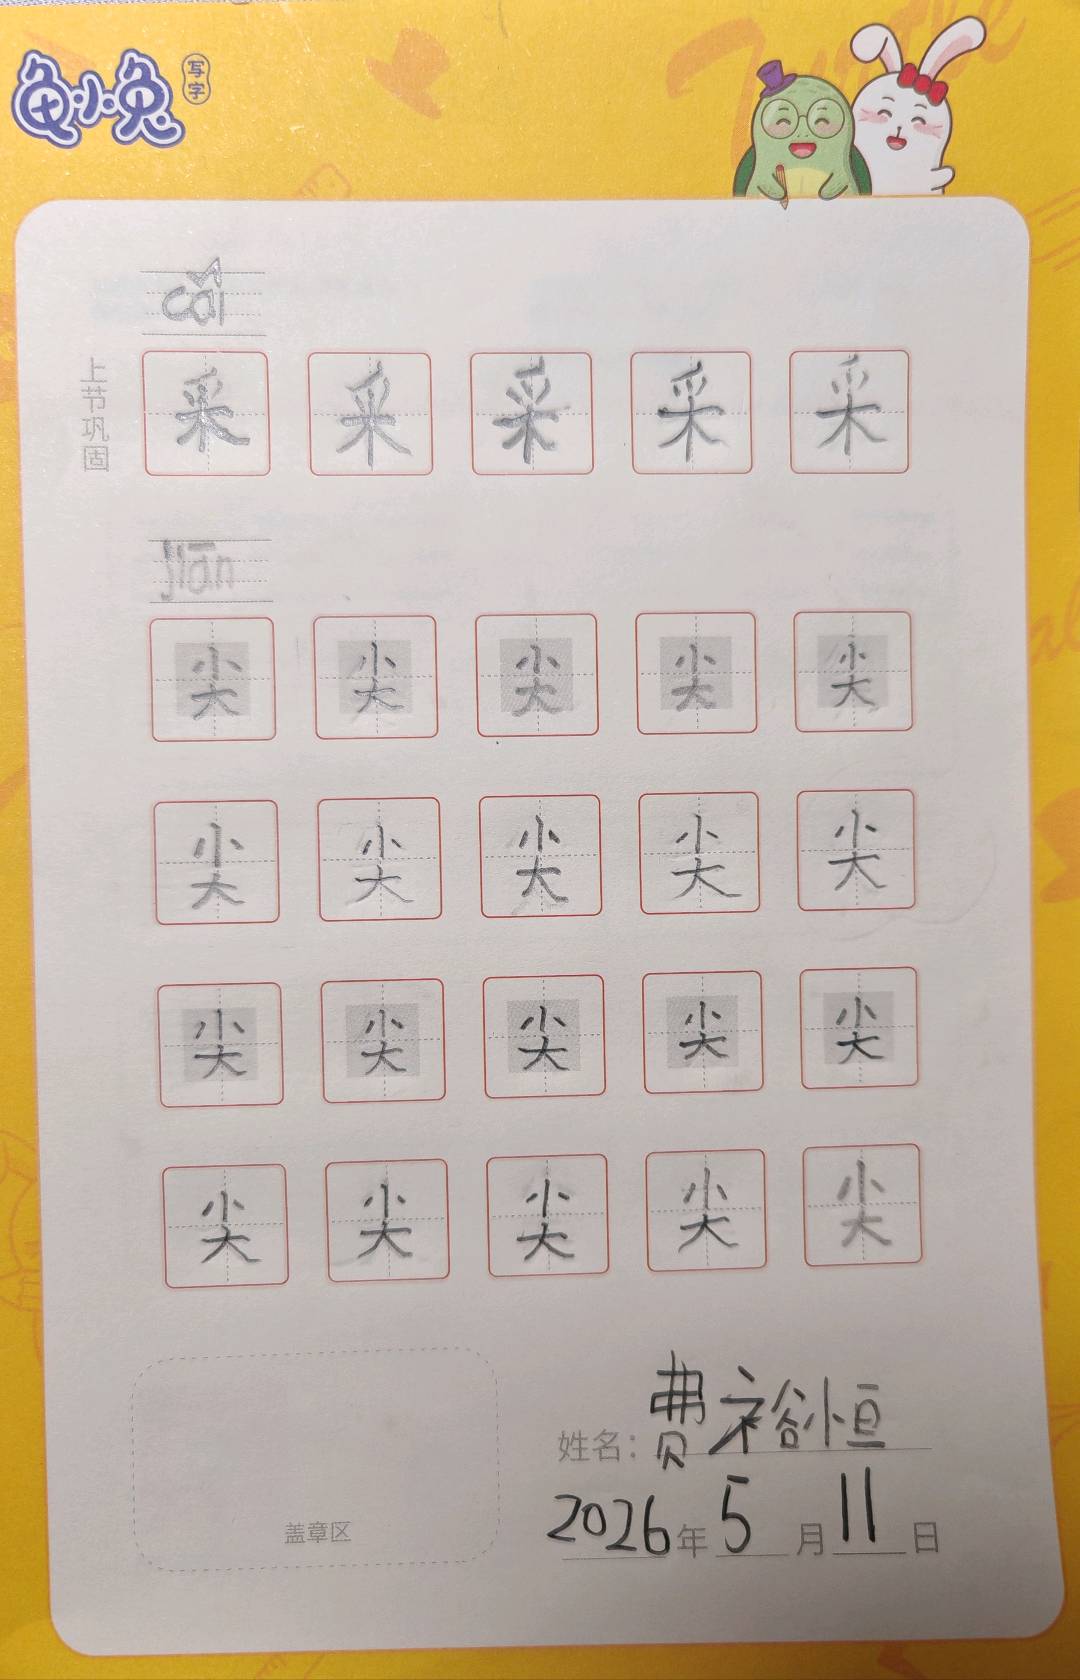 龟小兔 写字
cǎi
上节巩固
采 采 采 采 采
jiān
尖 尖 尖 尖 尖
尖 尖 尖 尖 尖
尖 尖 尖 尖 尖
尖 尖 尖 尖 尖
盖章区
姓名：费裕恒
2026年5月11日